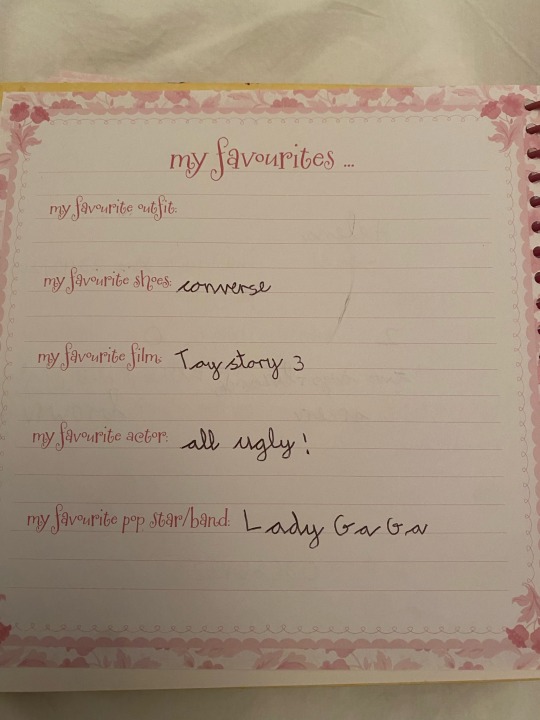 my favourites ...
my favourite outfit:
my favourite shoes: converse
my favourite film: Toy story 3
my favourite actor: all ugly!
my favourite pop star/band: Lady GaGa